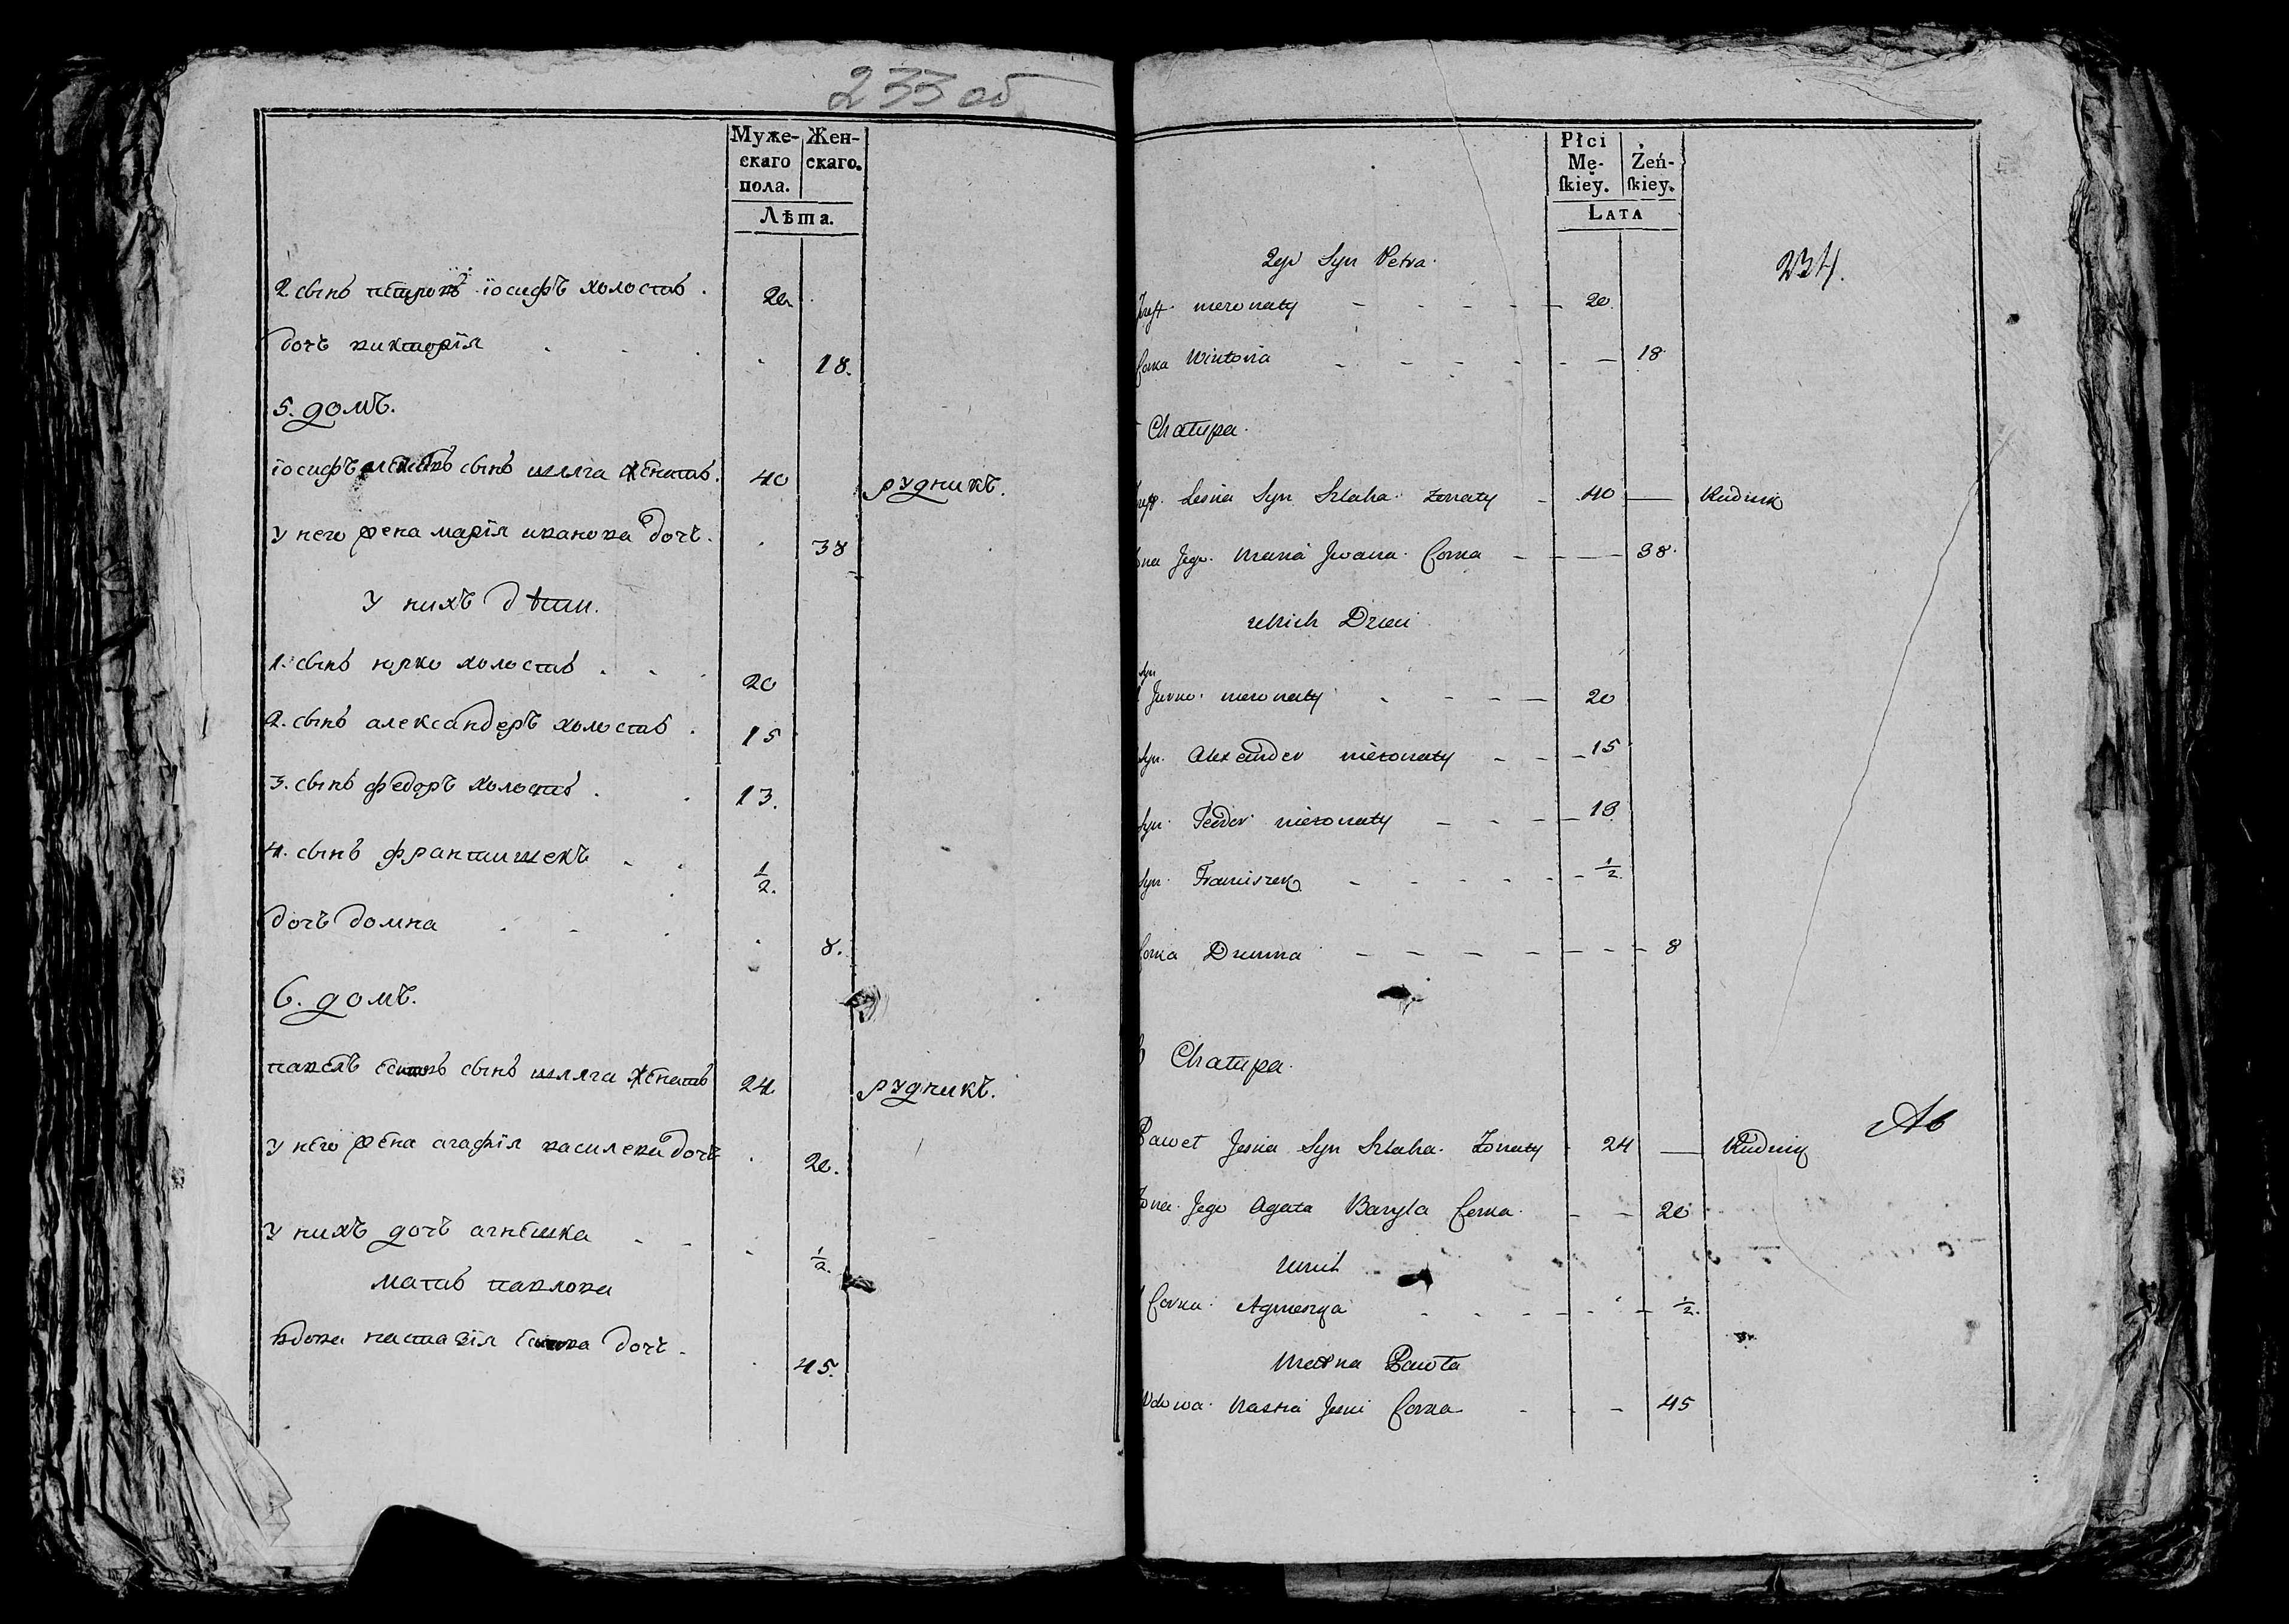 233 об
Муже-
скаго
пола.
Жен-
скаго.
Лѣта.
2 сынъ іосифъ холостъ . 20.
дочъ викторія . . . . 18.
5. домъ.
іосифъ сынъ шляга женатъ. 40 рудникъ.
у него жена марія иванова дочъ. . 38
у нихъ дѣти.
1. сынъ юрко холостъ . . . 20
2. сынъ александеръ холостъ . 15
3. сынъ федоръ холостъ . . 13.
4. сынъ францишекъ . . 1/2.
дочъ домна . . . . 8.
6. домъ.
павелъ сынъ шляга женатъ 24. рудникъ.
у него жена агафія василева дочъ . 20.
у нихъ дочъ агнешка - - - 1/2.
матъ павлова
вдова настазія дочъ . . 45.
Płci
Mę-
skiey.
Żeń-
skiey.
LATA
234.
2gi Syn Petra
niezonaty - - - - 20
Corka Wiktoria - - - - - - 18
Chatupa.
Lesia Syn Szlaha zonaty - 40 — Rudnik
Jego Maria Jwana Corka - - — 38.
unich Dzieci
Syn
Jurko niezonaty - - - — 20
Syn Alexander niezonaty - - - 15
Syn Feodor niezonaty - - - - 13
Syn Franciszek - - - - - - 1/2.
Corka Dumna - - - - - - - 8
6 Chatupa.
Ab
Pawel Jesia Syn Szlaha. Zonaty 24 — Rudnik
Zona Jego Agata Bazyla Corka - - 20
unich
1 Corka Agnieszka - - - - - - 1/2.
Matka Pawla
Wdowa Nastia Jesii Corka - - - 45